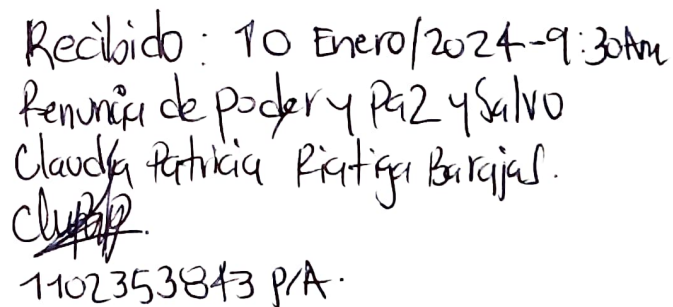 Recibido: 10 Enero/2024-9:30Am
Renuncia de poder y Paz y Salvo
Claudia Patricia Riatiga Barajas.
1102353843 P/A.